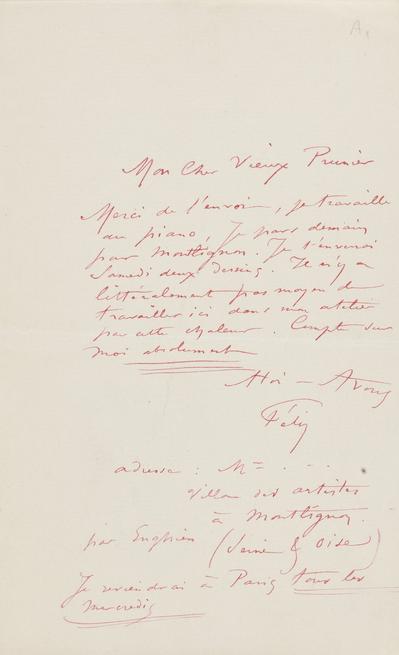 Mon Cher Vieux Prunier
Merci de l'envoi, je travaille
au piano, Je pars demain
pour Montlignon. Je t'enverrai
Samedi deux dessins. Il n'y a
littéralement pas moyen de
travailler ici dans mon atelier
par cette chaleur. Compte sur
moi absolument
Félix
adresse : Mr ...
villa des artistes
à Montlignon
par Enghien (Seine & Oise)
Je reviendrai à Paris tous les
mercredis